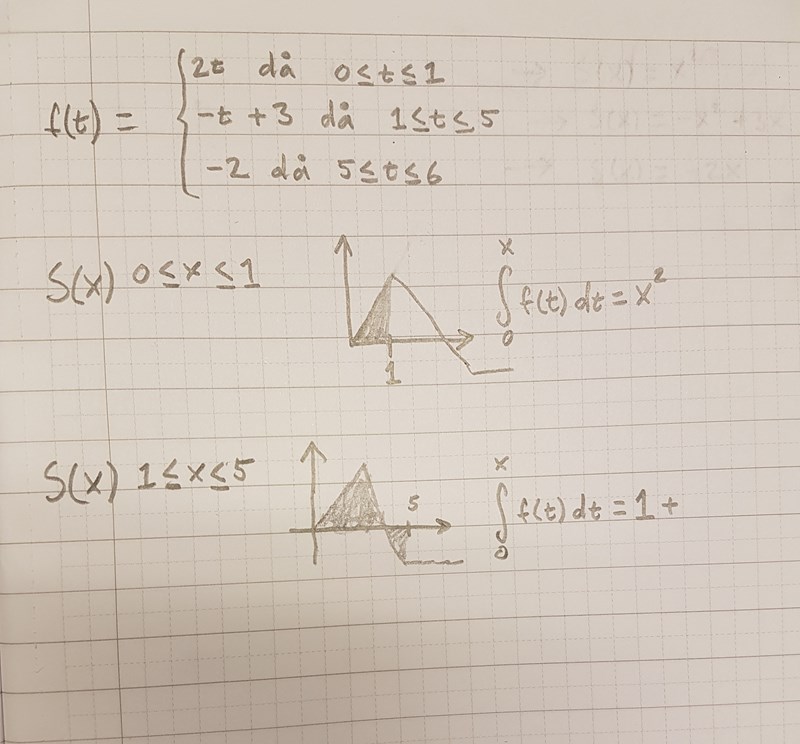 f(t) = { 2t då 0≤t≤1
-t +3 då 1≤t≤5
-2 då 5≤t≤6
S(x) 0≤x≤1 1 x ∫ 0 f(t) dt = x²
S(x) 1≤x≤5 5 x ∫ 0 f(t) dt = 1 +